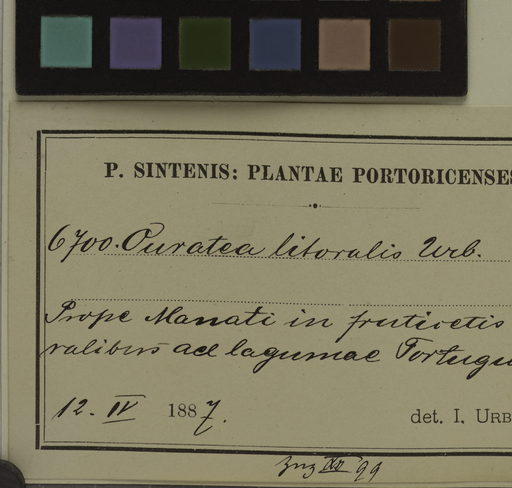 P. SINTENIS: PLANTAE PORTORICENSES
6700. Ouratea litoralis Urb.
Prope Manati in fruticetis
ralibus ad lagunae Tortugu
12. IV 1887.
det. I. URB
XII 99